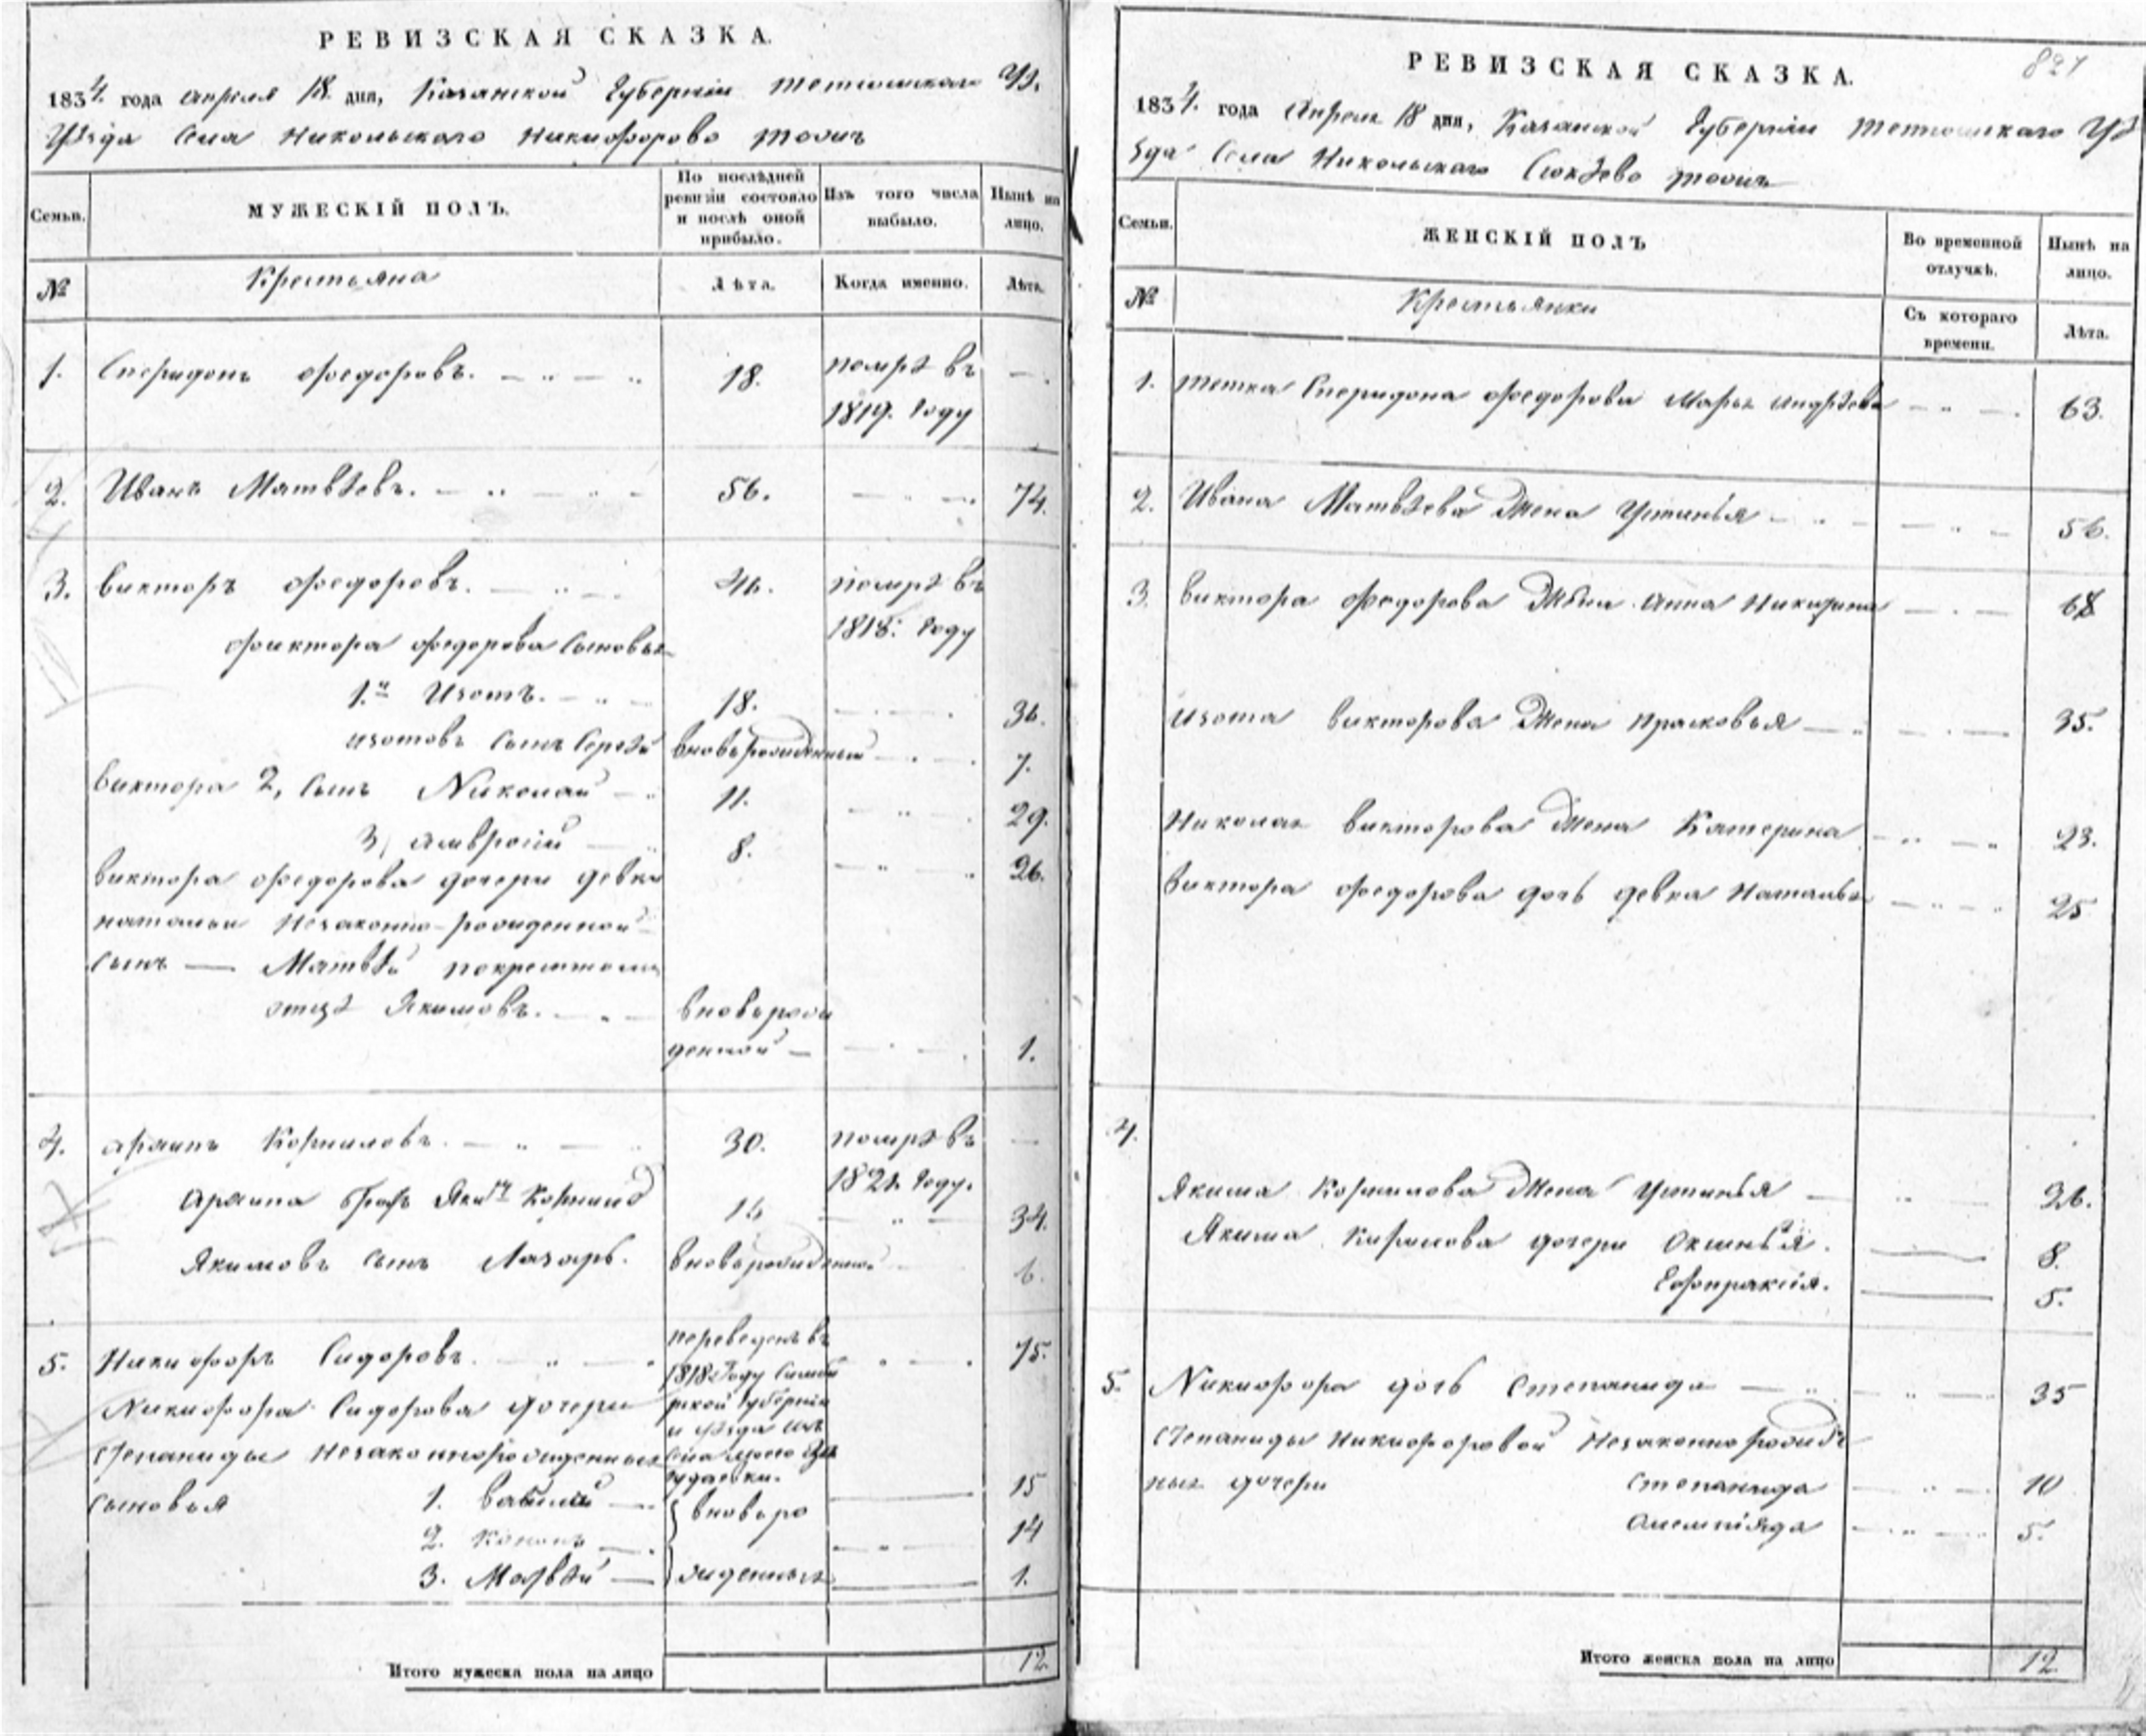 РЕВИЗСКАЯ СКАЗКА.
1834. года апреля 18. дня, Казанской Губернии тетюшскаго Уѣ.
Уѣзда Села Никольскаго Никифорово тожъ
Семьи.
МУЖЕСКІЙ ПОЛЪ.
По послѣдней ревизіи состояло и послѣ оной прибыло.
Изъ того числа выбыло.
Нынѣ на лицо.
№
Крестьяна
Лѣта.
Когда именно.
Лѣта.
1. Спиридонъ Федоровъ. 18. помрѣ въ —
1819. году
2. Иванъ Матвѣевъ. 56. 74.
3. Викторъ Федоровъ. помрѣ въ
Фиктора Федорова сыновья 1818. году
1.й Изотъ. 18. 36.
изотовъ сынъ Сергѣй вновьрожденный 7.
Виктора 2, сынъ Николай 11. 29.
3, Амвросій 8. 26.
Виктора Федорова дочери девки
натальи незаконно-рожденной
сынъ — Матвѣй покрестном
отцѣ Якимовъ. вновьрож
денной 1.
4. Архипъ Корниловъ. 30. помрѣ въ —
1821. году.
братъ Якимъ 16 34.
Якимовъ сынъ Лазарь. вновьрожденной 6.
5. Никифоръ Сидоровъ. переведенъ въ 75.
1818 году Симби
Никифора Сидорова дочери рской губерніи
и уѣзда изъ
Степаниды незаконнорожденныя села
сыновья 1. Василий 15
2. Кононъ { вновьро 14
3. Матвѣй } жденныя 1.
Итого мужеска пола на лицо 12
821
РЕВИЗСКАЯ СКАЗКА.
1834. года Апреля 18 дня, Казанской Губернии тетюшскаго Уѣ
ѣзда Села Никольскаго Сюкѣево тожъ
Семьи.
ЖЕНСКІЙ ПОЛЪ
Во временной отлучкѣ.
Нынѣ на лицо.
№
Крестьянки
Съ котораго времени.
Лѣта.
1. тетка Спиридона Федорова Марья Андрѣева 63.
2. Ивана Матвѣева Жена Устинья 56.
3. Виктора Федорова Жена Анна 68
Изота Викторова Жена Прасковья 35.
Николая Викторова Жена Катерина 23.
Виктора Федорова дочь девка Наталья 25
4.
Якима Корнилова Жена Устинья 36.
Якима Корнилова дочери Оксинья. 8.
Ефпраксія. 5.
5. Никифора дочь Степанида 35
Степаниды Никифоровой Незаконнорожде
ныя дочери Степанида 10
Олемпіяда 5.
Итого женска пола на лицо 12